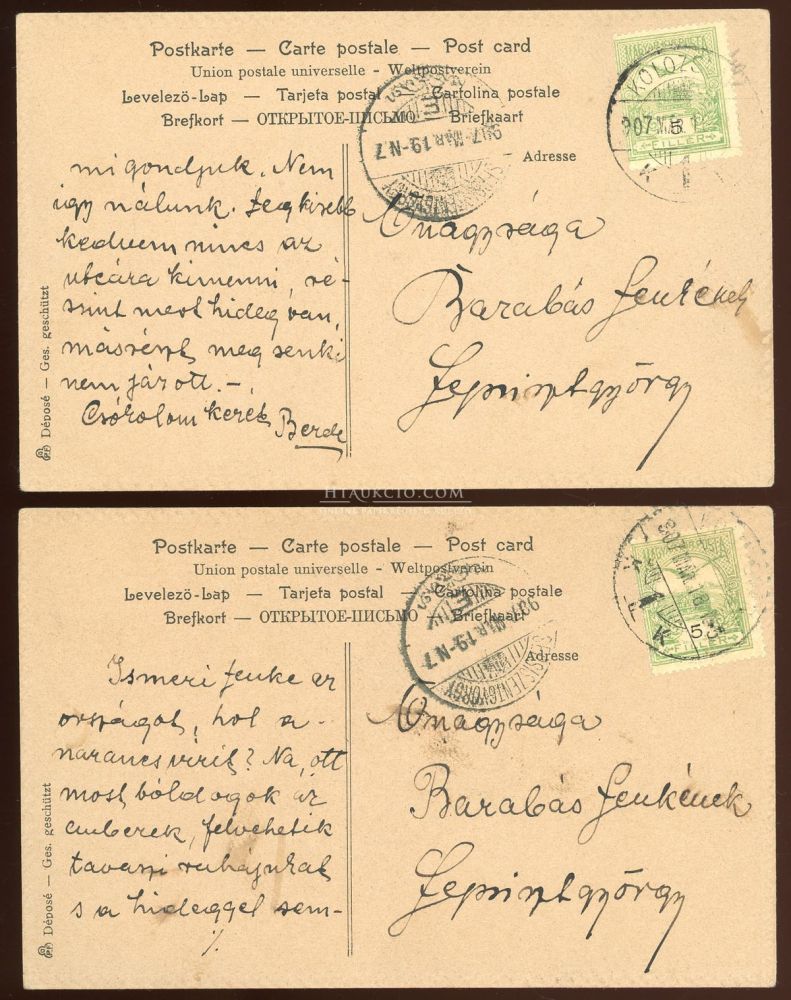 Postkarte — Carte postale — Post card
Union postale universelle - Weltpostverein
Levelezö-Lap — Tarjeta postal — Cartolina postale
Brefkort — ОТКРЫТОЕ-ПИСЬМО — Briefkaart
Adresse
MAGYAR KIR. POSTA
5
FILLER
KOLOZS
907 MÁR. 1
K
907 MÁR. 19-N.7
SEPSISZENTGYÖRGY
mi gondjuk. Nem
így nálunk. Legkisebb
kedvem nincs az
utcára kimenni, ré-
szint mert hideg van,
másrészt, meg senki
nem jár ott. —
Csókolom kezét
Berde
Őnagysága
Barabás Lenkének
Sepsisztgyörgy
Déposé — Ges. geschützt
HTAUKCIO.COM
Postkarte — Carte postale — Post card
Union postale universelle - Weltpostverein
Levelezö-Lap — Tarjeta postal — Cartolina postale
Brefkort — ОТКРЫТОЕ-ПИСЬМО — Briefkaart
Adresse
5
FILLER
K
907 MÁR. 19-N.7
SEPSISZENTGYÖRGY
Ismeri Lenke az
országot, hol a
narancs virít? Na, ott
most boldogok az
emberek, felvehetik
tavaszi ruhájukat
s a hideggel sem-
./.
Őnagysága
Barabás Lenkének
Sepsisztgyörgy
Déposé — Ges. geschützt